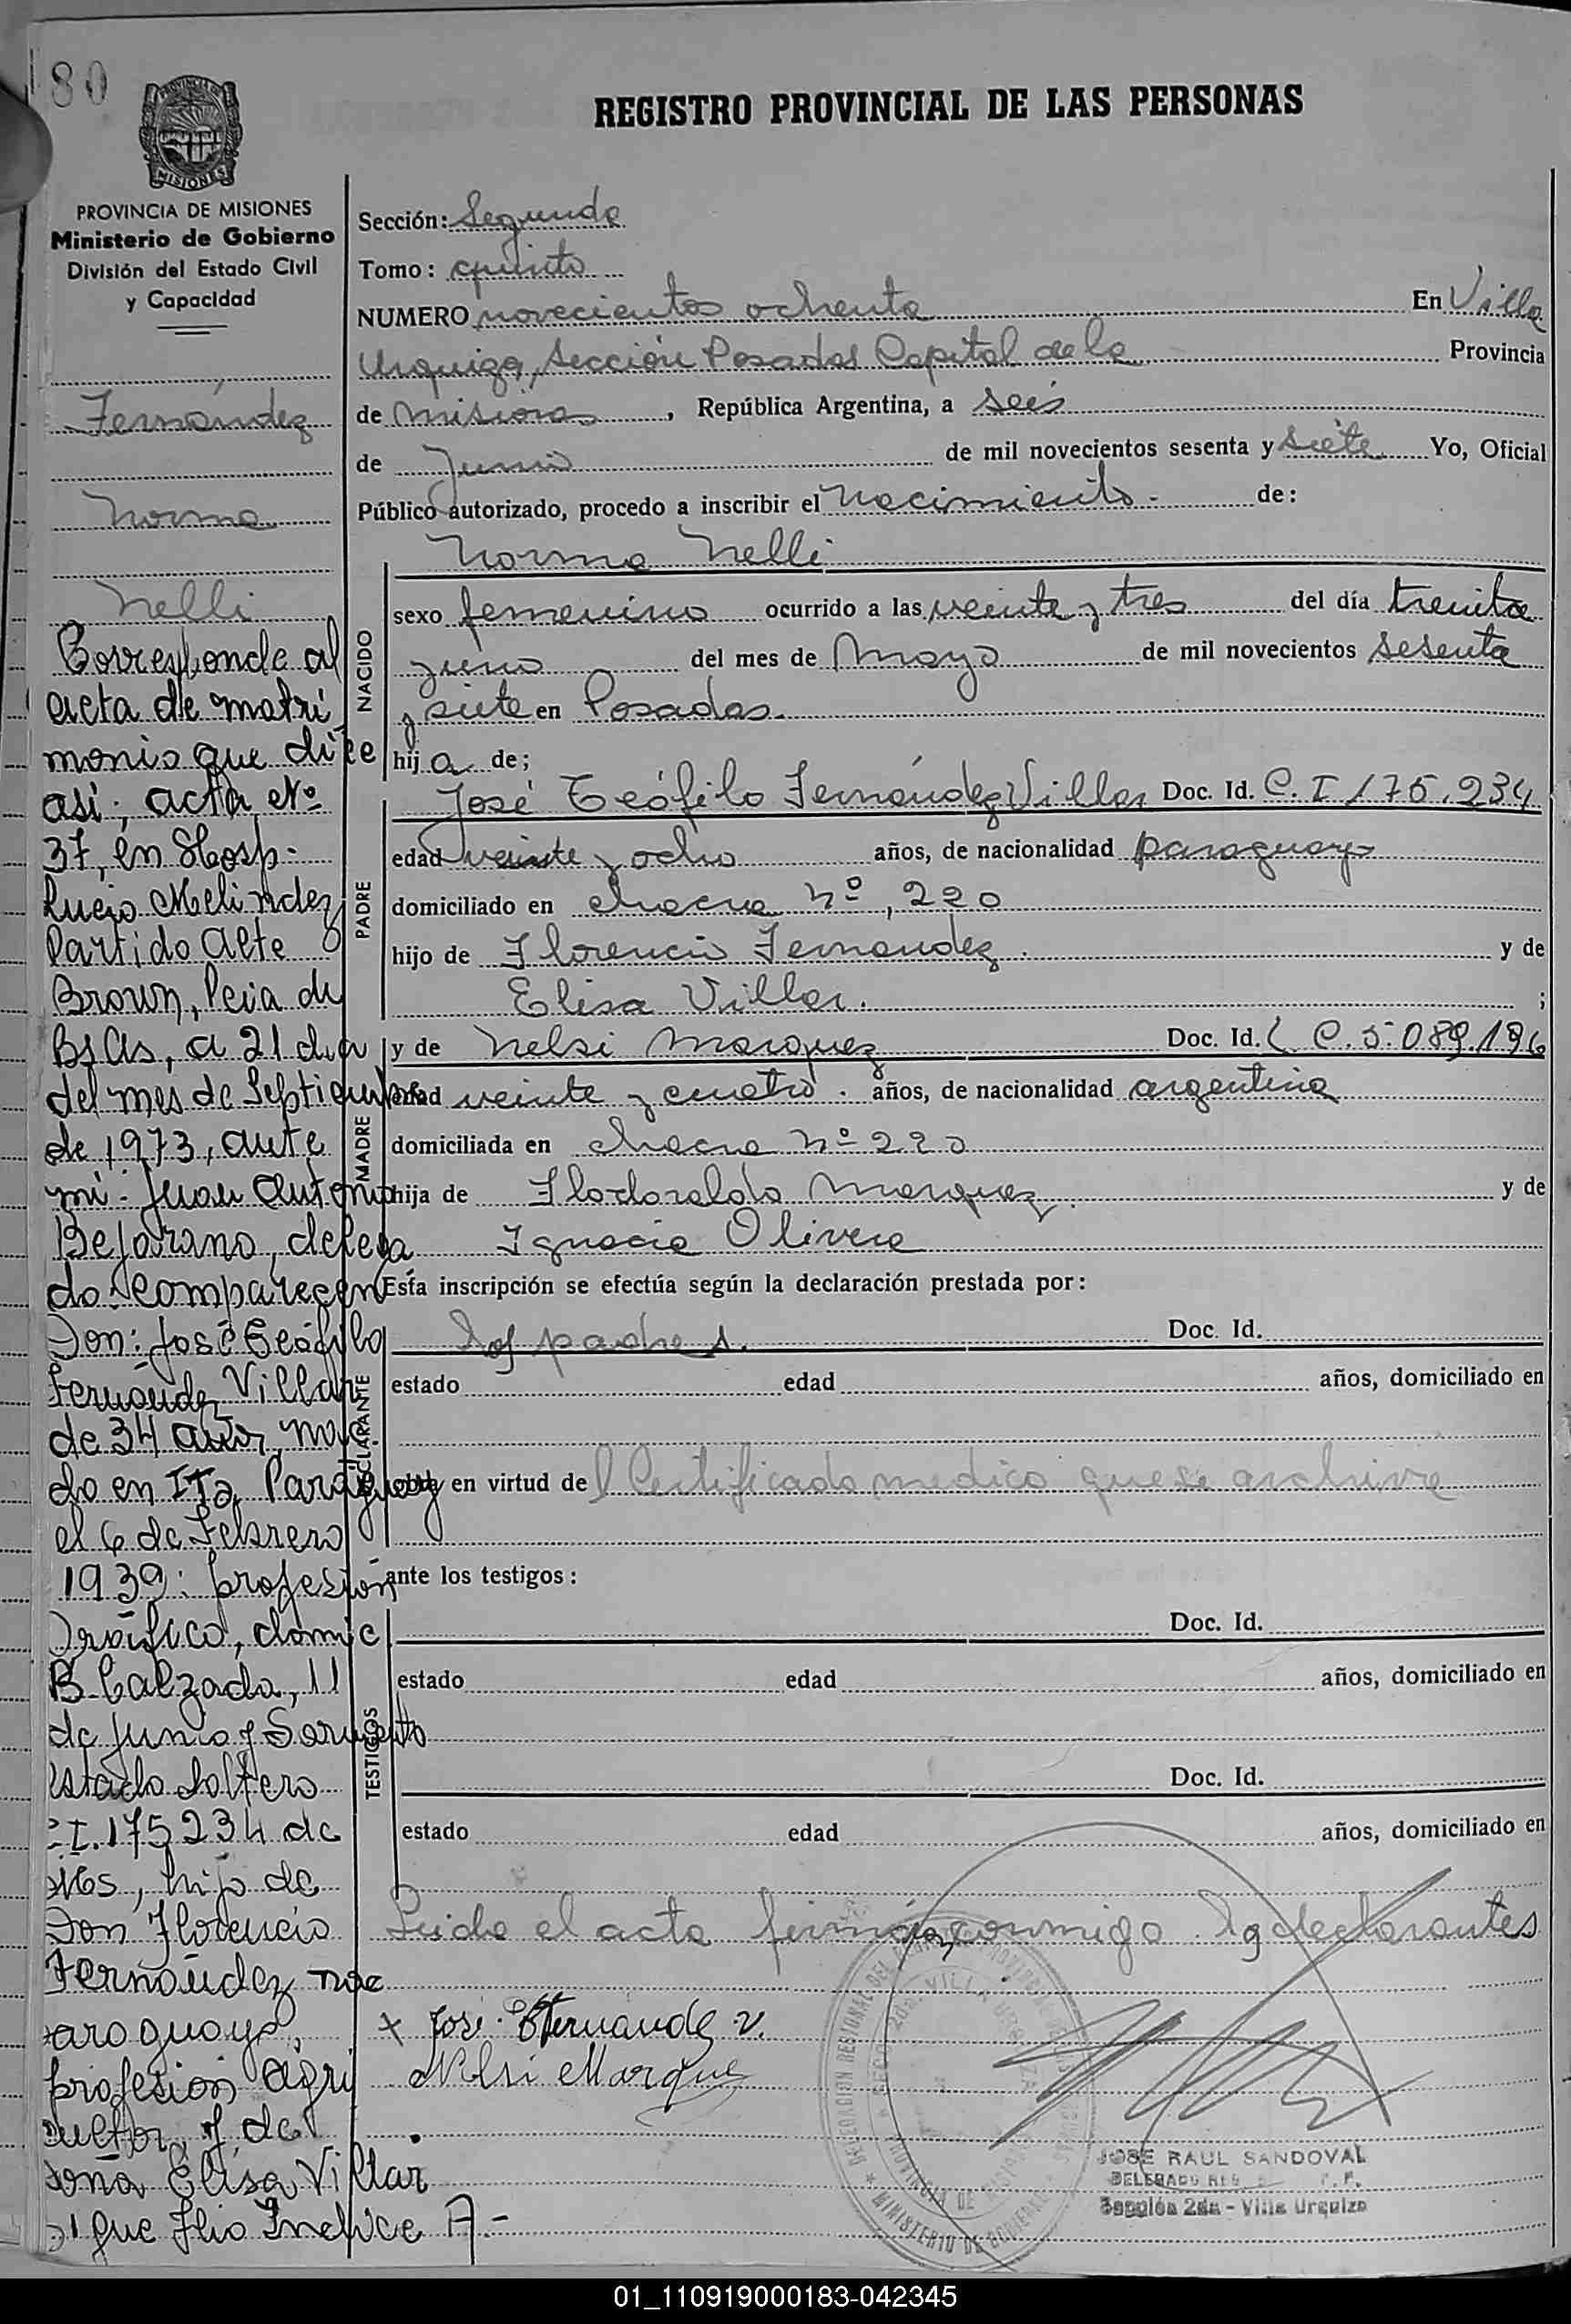 80
REGISTRO PROVINCIAL DE LAS PERSONAS
MISIONES
PROVINCIA DE MISIONES
Ministerio de Gobierno
División del Estado Civil
y Capacidad
Fernández
Norma
Nelli
Corresponde al
acta de matri
monio que dice
asi; acta Nº
37, en Hosp.
Lucio Melindez
Partido Alte
Brown, Pcia de
BsAs, a 21 dia
del mes de Septiembre
de 1973, ante
mi. Juan Antonio
Bejarano, delega
do comparecen
Don: José Teófilo
Fernandez Villar
de 34 años, naci
do en Ita Paraguay
el 6 de Febrero
1939: profesión
Gráfico, domic
B. Calzada, 11
de Junio y Sarmiento
estado soltero
C.I. 175234 de
Mes, hijo de
Don Florencio
Fernández nac
paraguaya,
profesion agri
cultor, y de
dona Elisa Villar
Sigue Flio Indice A.-
Sección: Segunda
Tomo: quinto
NUMERO novecientos ochenta En Villa
Urquiza, Sección Posadas Capital de la Provincia
de Misiones, República Argentina, a seis
de Junio de mil novecientos sesenta y siete Yo, Oficial
Público autorizado, procedo a inscribir el Nacimiento.- de:
Norma Nelli
NACIDO
sexo femenino ocurrido a las veinte y tres del día treinta
y uno del mes de Mayo de mil novecientos sesenta
y siete en Posadas.
hija de;
PADRE
José Teófilo Fernández Villar Doc. Id. C. I 175.234
edad veinte y ocho años, de nacionalidad paraguayo
domiciliado en chacra nº, 220
hijo de Florencio Fernández. y de
Elisa Villar. ;
MADRE
y de Nelsi Marquez Doc. Id. L C. 5.089.196
edad veinte y cuatro. años, de nacionalidad argentina
domiciliada en chacra nº 220
hija de Flodoraldo Marquez. y de
Ignacia Olivera
Esta inscripción se efectúa según la declaración prestada por:
DECLARANTE
Los padres. Doc. Id.
estado edad años, domiciliado en
obra en virtud del Certificado medico que se archiva
ante los testigos:
TESTIGOS
Doc. Id.
estado edad años, domiciliado en
Doc. Id.
estado edad años, domiciliado en
Leida el acta firman conmigo los declarantes
x José Fernandez V.
Nelsi Marque
JOSE RAUL SANDOVAL
DELEGADO
Sección 2da - Villa Urquiza
01_110919000183-042345